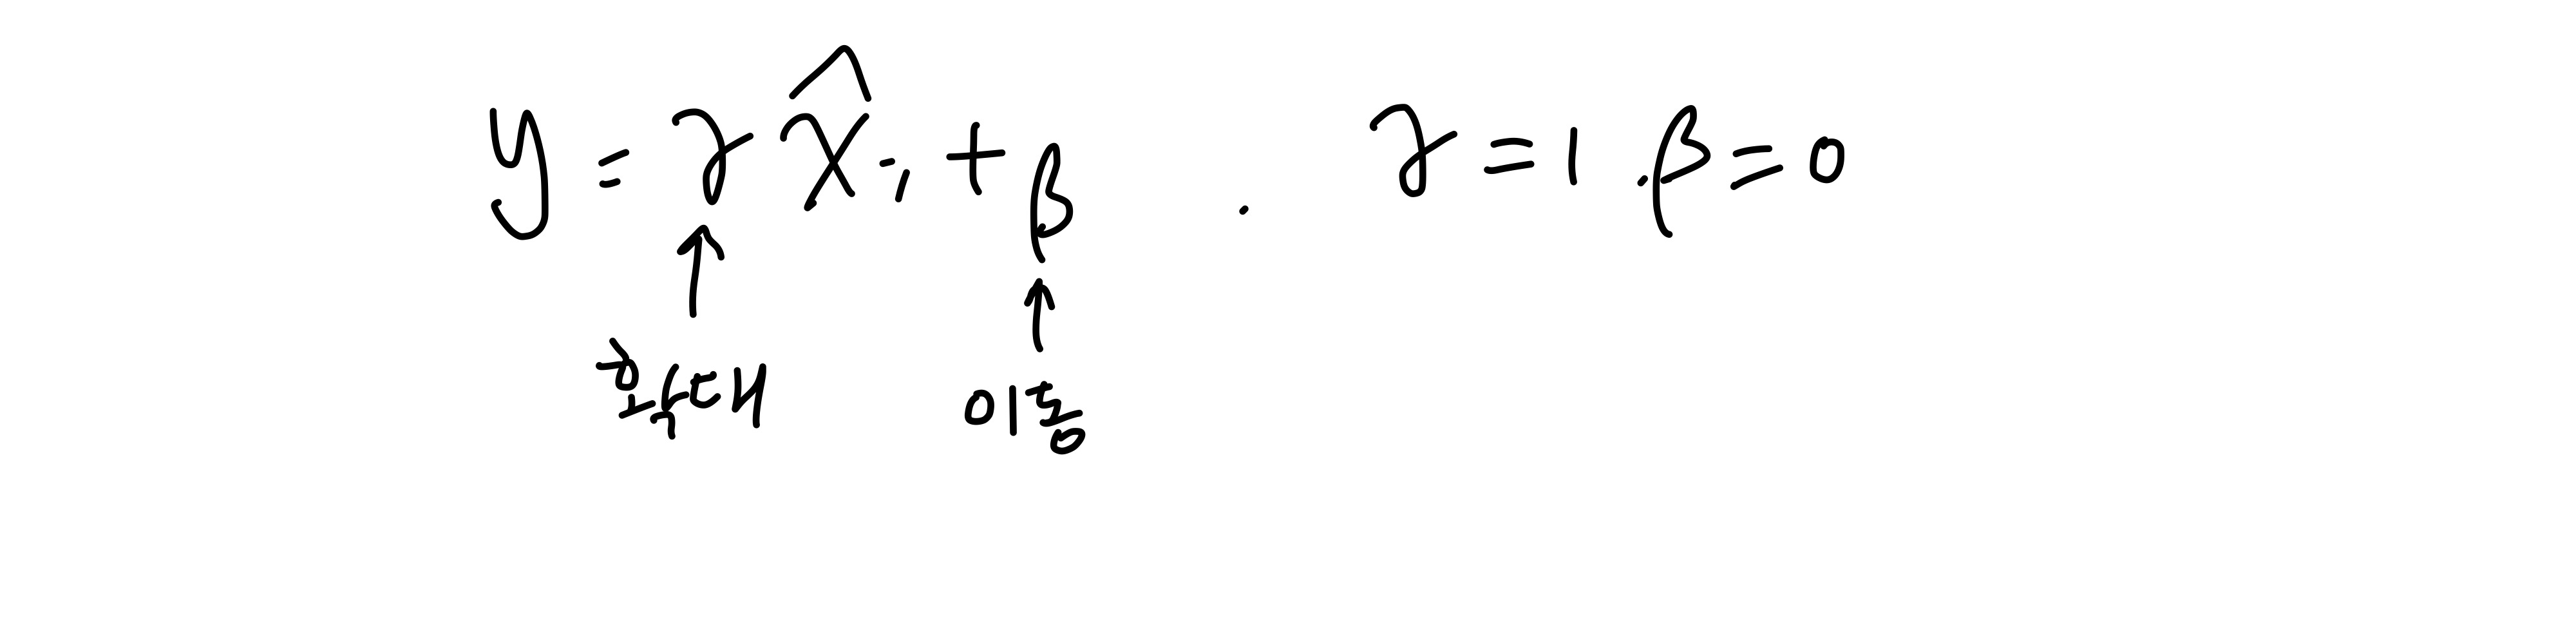 y = γ x̂i + β . γ = 1 . β = 0
확대 이동